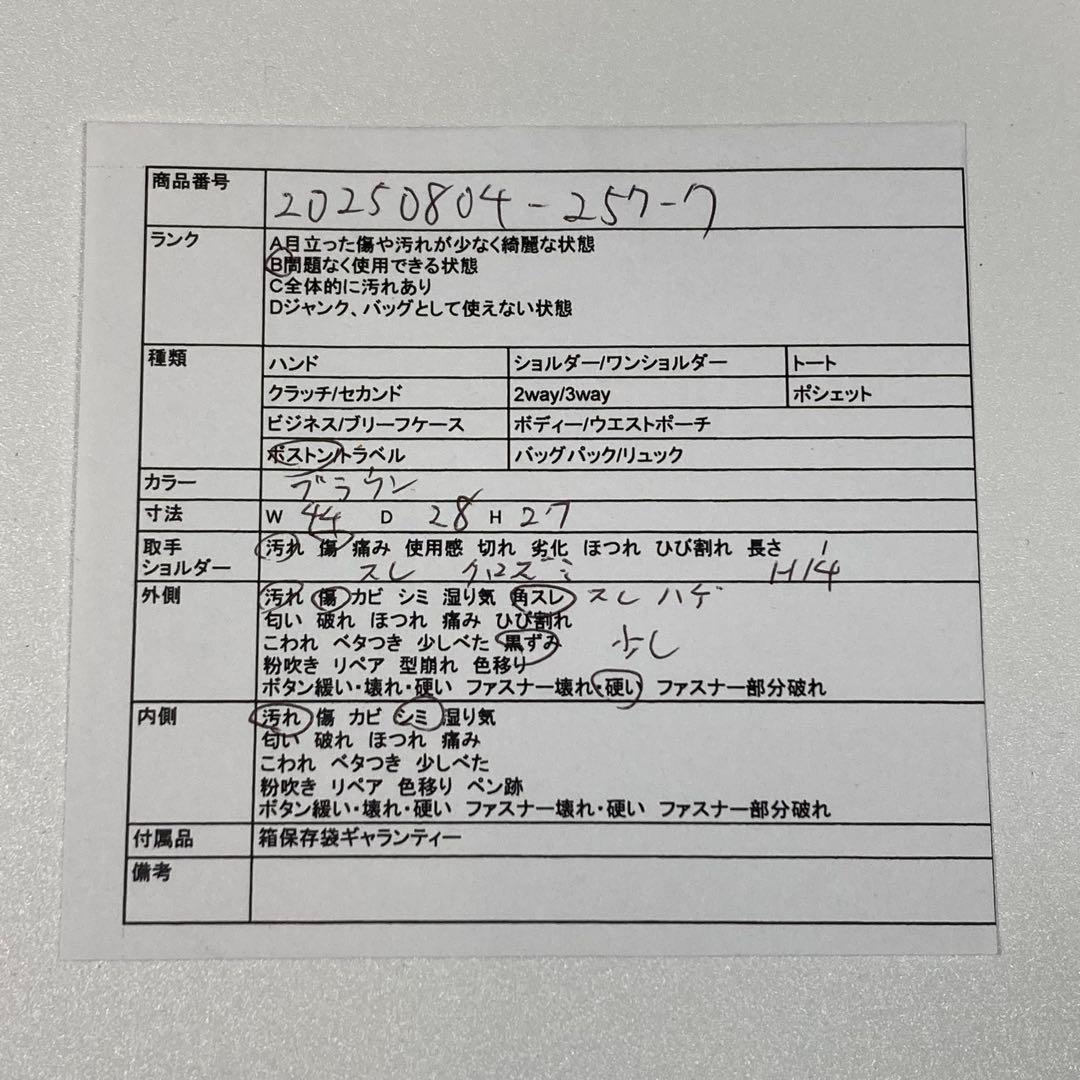 商品番号 20250804-257-7
ランク A目立った傷や汚れが少なく綺麗な状態
B問題なく使用できる状態
C全体的に汚れあり
Dジャンク、バッグとして使えない状態
種類 ハンド ショルダー/ワンショルダー トート
クラッチ/セカンド 2way/3way ポシェット
ビジネス/ブリーフケース ボディー/ウエストポーチ
ボストン/トラベル バッグパック/リュック
カラー ブラウン
寸法 W 44 D 28 H 27
取手 汚れ 傷 痛み 使用感 切れ 劣化 ほつれ ひび割れ 長さ
ショルダー スレ クロズミ H14
外側 汚れ 傷 カビ シミ 湿り気 角スレ スレ ハゲ
匂い 破れ ほつれ 痛み ひび割れ
こわれ ベタつき 少しべた 黒ずみ 少し
粉吹き リペア 型崩れ 色移り
ボタン緩い・壊れ・硬い ファスナー壊れ・硬い ファスナー部分破れ
内側 汚れ 傷 カビ シミ 湿り気
匂い 破れ ほつれ 痛み
こわれ ベタつき 少しべた
粉吹き リペア 色移り ペン跡
ボタン緩い・壊れ・硬い ファスナー壊れ・硬い ファスナー部分破れ
付属品 箱保存袋ギャランティー
備考